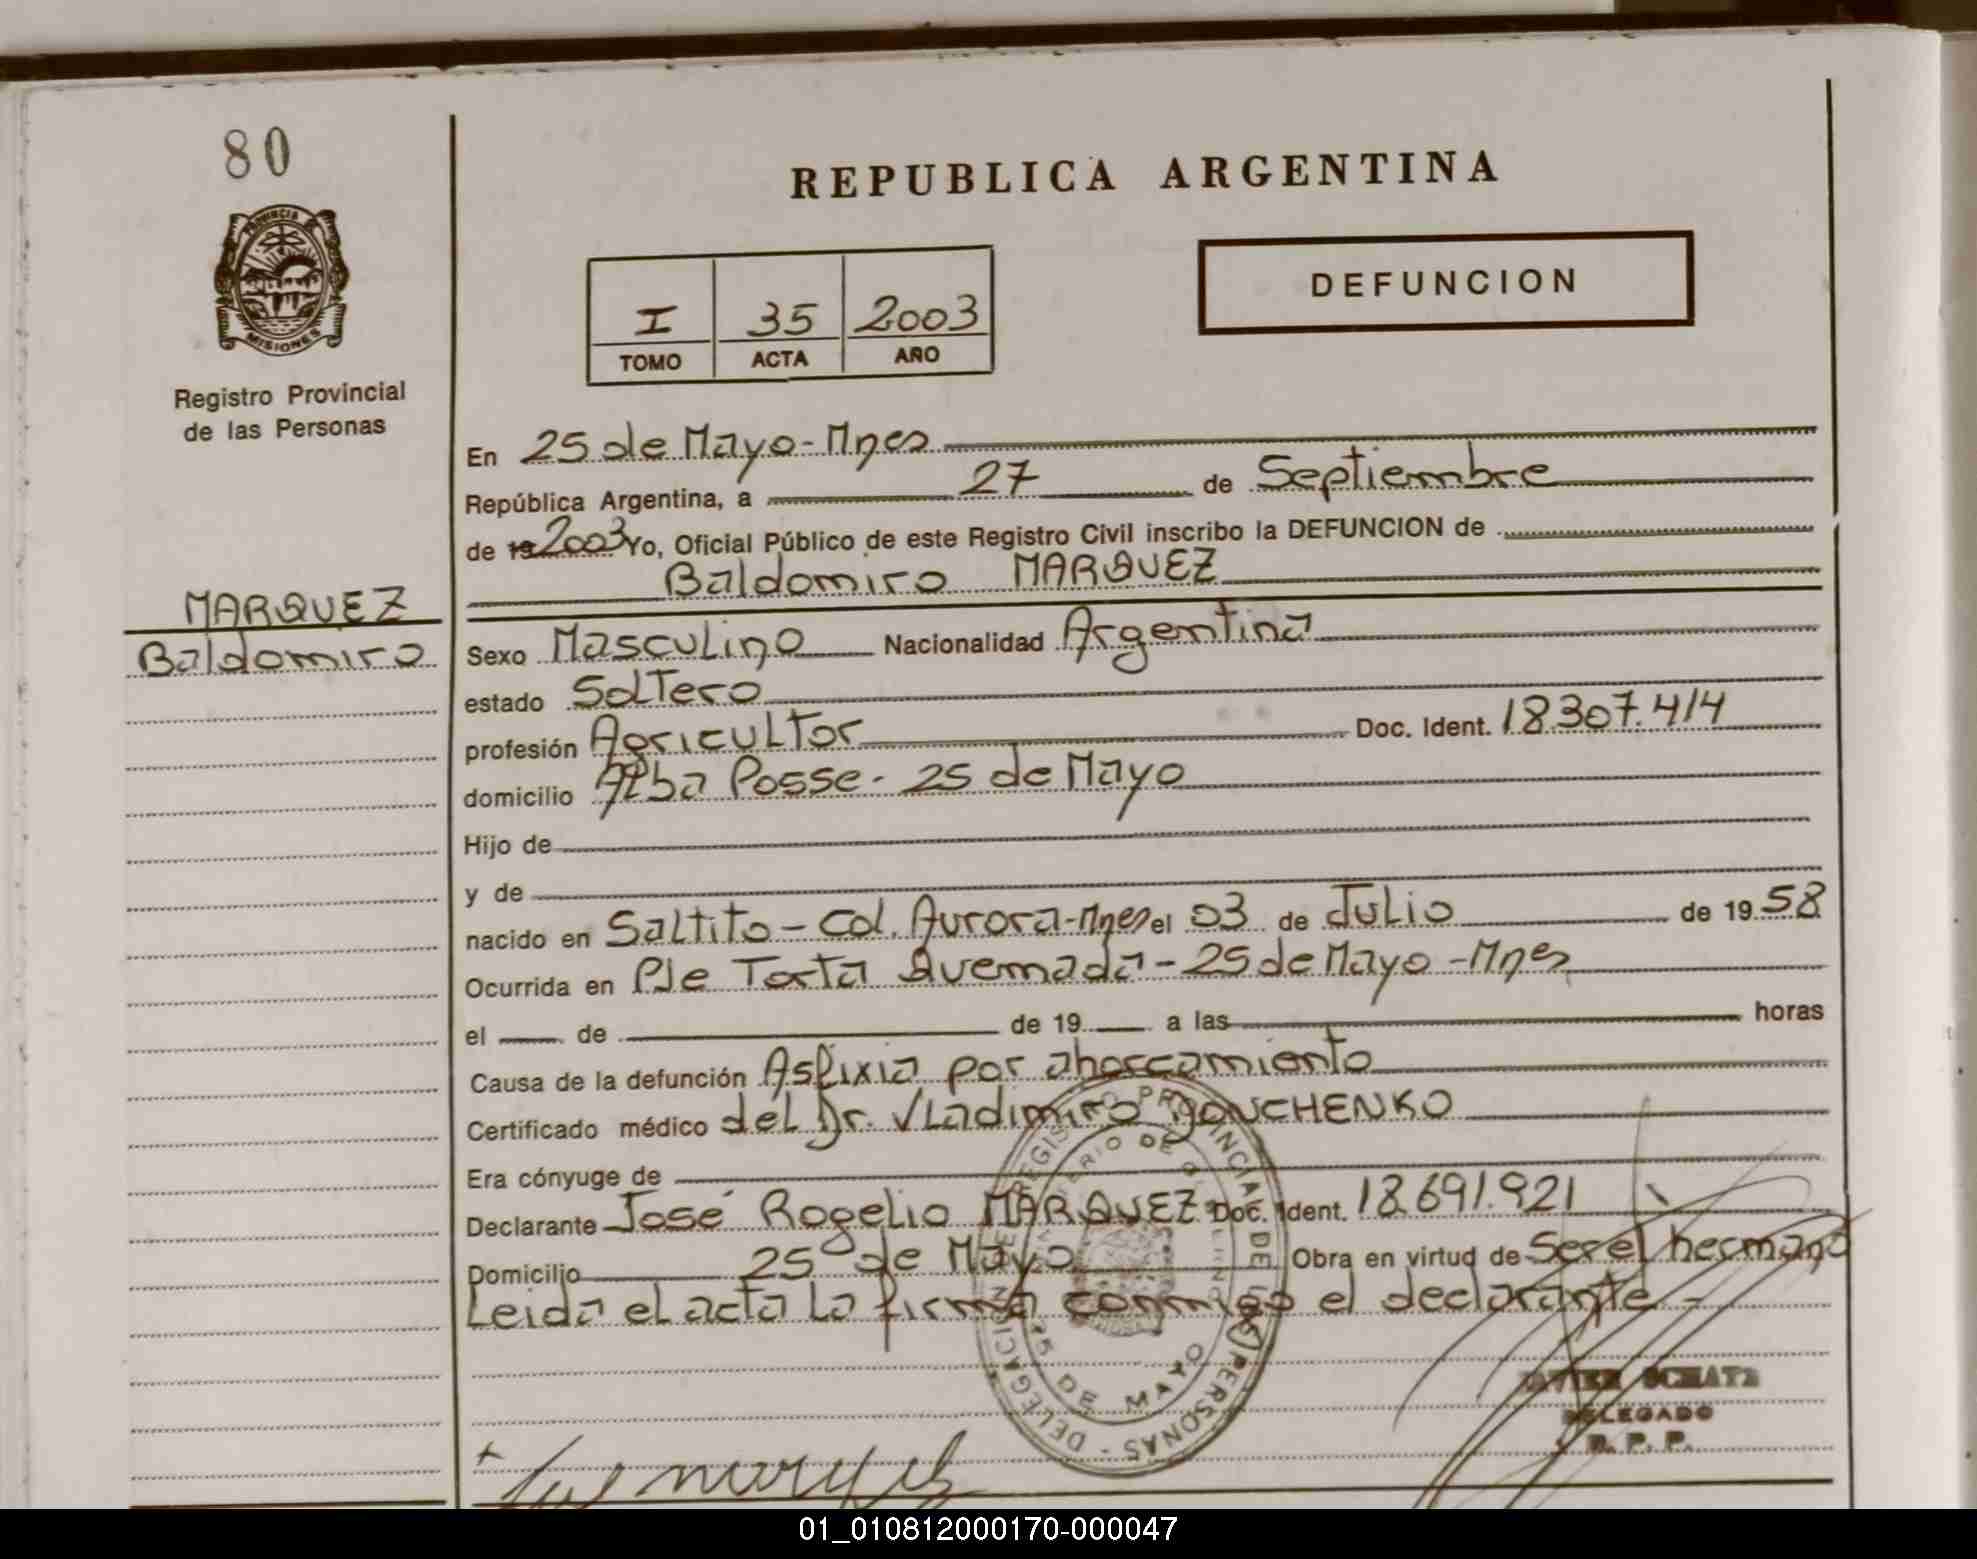 80
REPUBLICA ARGENTINA
PROVINCIA DE
MISIONES
DEFUNCION
I 35 2003
TOMO ACTA AÑO
Registro Provincial
de las Personas
En 25 de Mayo - Mnes
República Argentina, a 27 de Septiembre
de 19 2003 Yo, Oficial Público de este Registro Civil inscribo la DEFUNCION de
Baldomiro MARQUEZ
MARQUEZ
Baldomiro
Sexo Masculino Nacionalidad Argentina
estado Soltero
profesión Agricultor Doc. Ident. 18.307.414
domicilio Alba Posse - 25 de Mayo
Hijo de
y de
nacido en Saltito - Col. Aurora - Mnes el 03 de Julio de 19 58
Ocurrida en Pje Torta Quemada - 25 de Mayo - Mnes
el de de 19 a las horas
Causa de la defunción Asfixia por ahorcamiento
Certificado médico del Dr. Vladimiro
Era cónyuge de
Declarante José Rogelio MARQUEZ Doc. Ident. 18.691.921
Domicilio 25 de Mayo Obra en virtud de Ser el hermano
Leida el acta la firma conmigo el declarante -
REGISTRO PROVINCIAL DE LAS PERSONAS - DELEGACION
25 DE MAYO
JAVIER SCHATZ
DELEGADO
R. P. P.
marquez
01_010812000170-000047